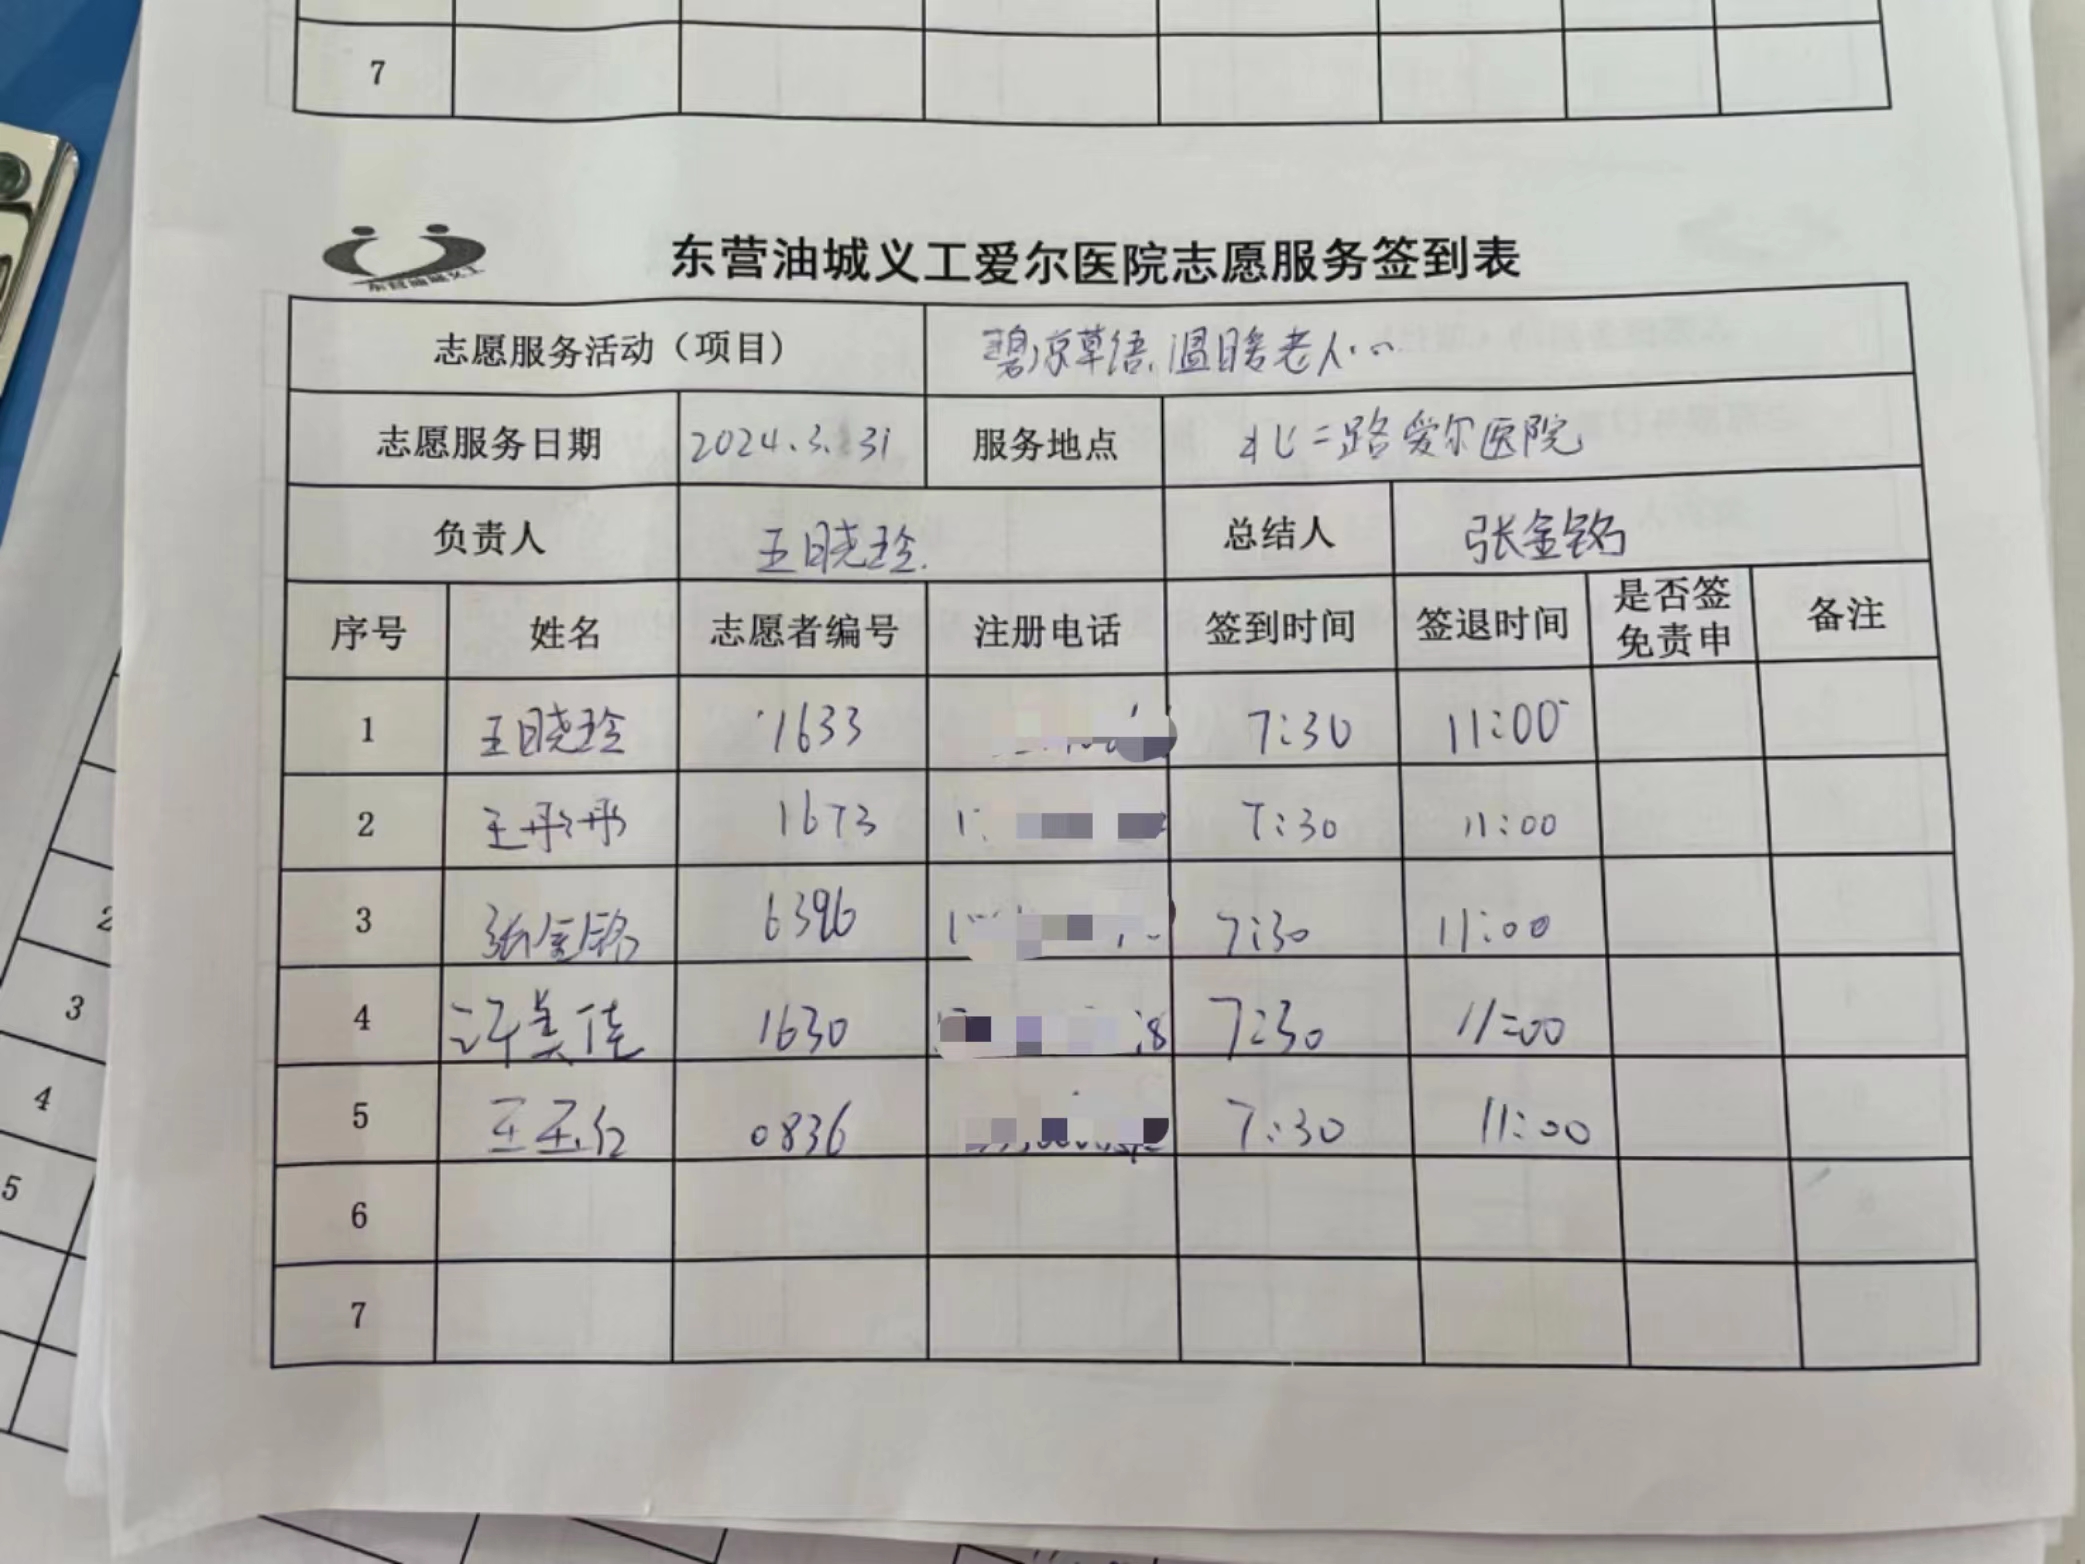 7
东营油城义工
东营油城义工爱尔医院志愿服务签到表
志愿服务活动（项目） 碧凉草语.温暖老人心
志愿服务日期 2024.3.31 服务地点 北二路爱尔医院
负责人 王晓玲. 总结人 张金铭
序号 姓名 志愿者编号 注册电话 签到时间 签退时间 是否签免责申 备注
1 王晓玲 1633 7:30 11:00
2 王彤彤 1673 7:30 11:00
3 张金铭 6396 7:30 11:00
4 许美佳 1630 7:30 11:00
5 王玉红 0836 7:30 11:00
6
7
2
3
4
5